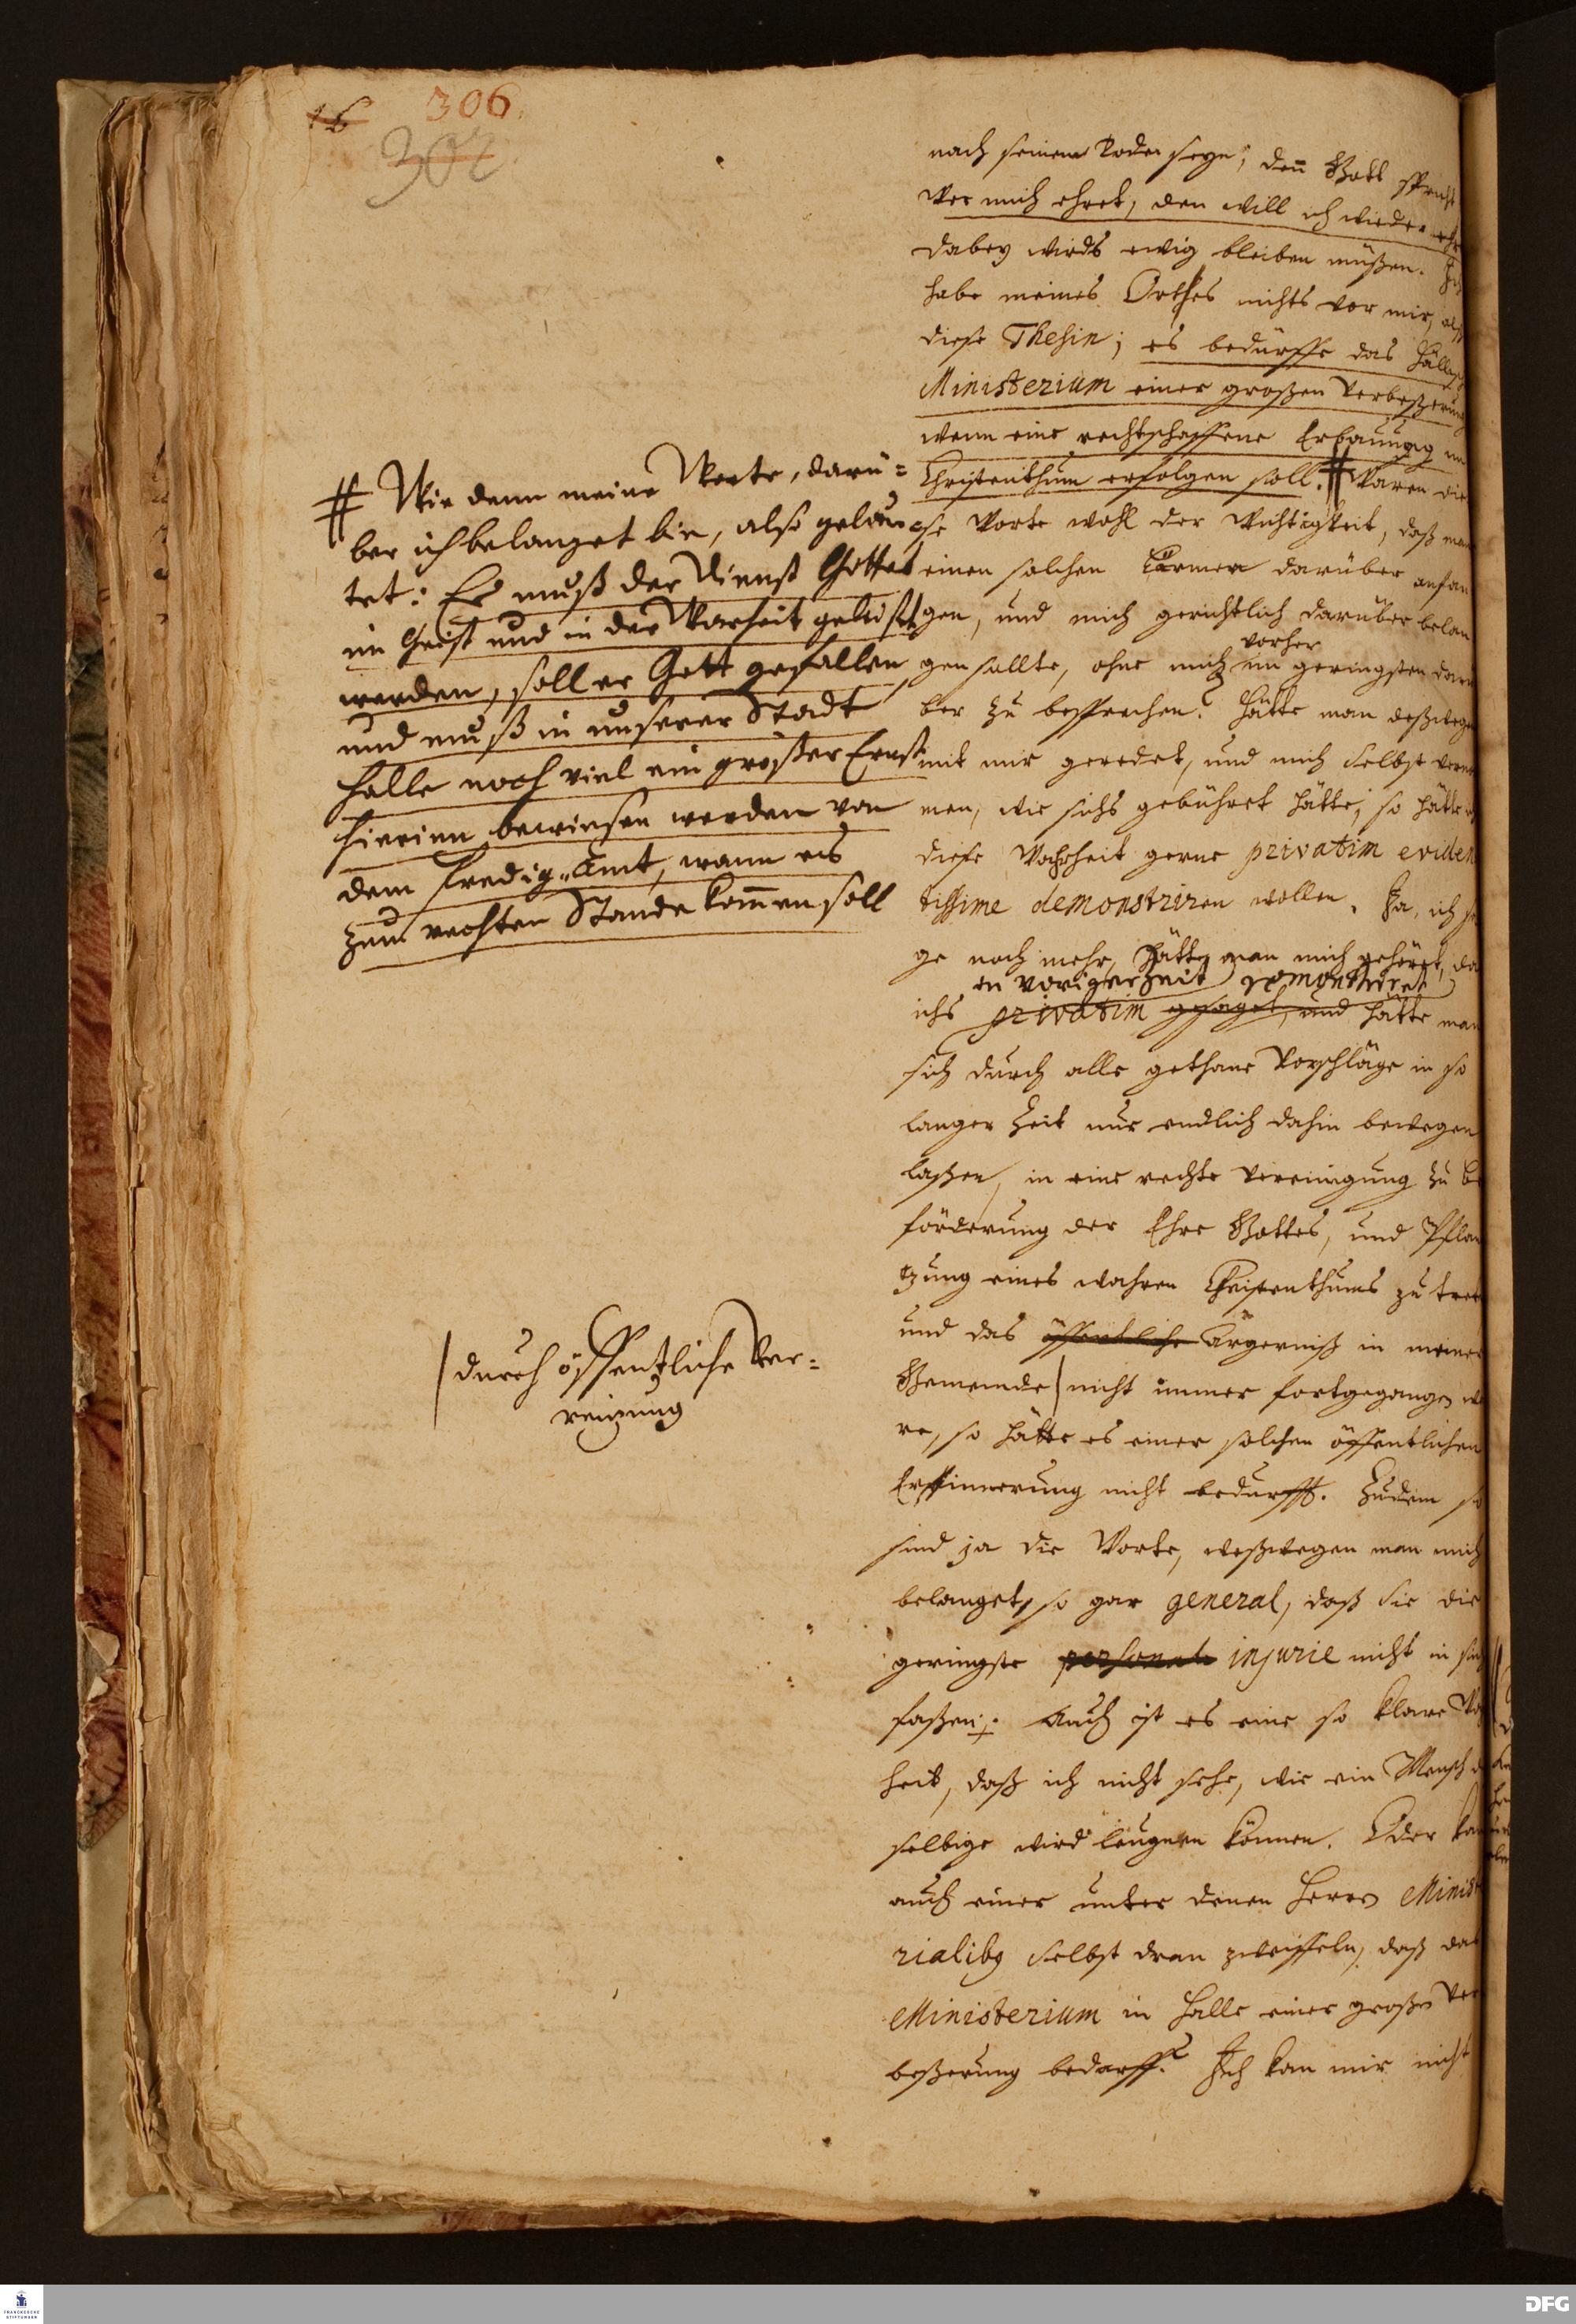 16 306.
302.
nach seinem Tode seyn; deñ Gott spricht
Wer mich ehret, den will ich wieder ehr
dabey wirds ewig bleiben müßen. Ich
habe meines Orthes nichts vor mir, alß
diese Thesin; es bedürffe das Hällisch
Ministerium einer großen Verbeßerung
wenn eine rechtschaffene Erbauung im
Christenthum erfolgen soll. # Waren die
se Worte wohl der Wichtigkeit, daß man
einen solchen Lärmen darüber anfan
gen, und mich gerichtlich darüber belan
vorher
gen sollte, ohne mich im geringsten darü
ber zu besprechen? Hätte man deßwegen
mit mir geredet, und mich selbst vernom
men, wie sichs gebühret hätte, so hätte ich
diese Wahrheit gerne privatim eviden
tissime demonstriren wollen. Ja, ich sa
ge noch mehr, hätte man mich gehöret, da
in voriger Zeit remonstriret
ichs privatim gesaget, und hätte man
sich durch alle gethane Vorschläge in so
langer Zeit nur endlich dahin bewegen
laßen, in eine rechte Vereinigung zu be
förderung der Ehre Gottes, und Pflan
tzung eines wahren Christenthums zu tret
und das öffentliche Ärgerniß in meiner
Gemeinde | nicht immer fortgegangen wä
re, so hätte es einer solchen öffentlichen
Erinnerung nicht bedurfft. Zudem so
sind ja die Worte, weßwegen man mich
belanget, so gar general, daß sie die
geringste personale injurie nicht in sich
faßen. Auch ist es eine so klare Wahr
heit, daß ich nicht sehe, wie ein Mensch d
selbige wird leugnen können. Oder kan
auch einer unter denen Herrn Ministe
rialibg selbst dran zweiffeln, daß das
Ministerium in Halle einer großen Ver
beßerung bedarff? Ich kan mir nicht
# Wie denn meine Worte, darü=
ber ich belanget bin, also gelau
tet: Es muß der Dienst Gottes
im Geist und in der Warheit geleistet
werden, soll er Gott gefallen,
und muß in unserer Stadt
Halle noch viel ein großer Ernst
hierinn bewiesen werden von
dem Predig-Amt, wann es
zum rechten Stande kom̃en soll
| durch öffentliche Ver=
reitzung
FRANCKESCHE
STIFTUNGEN
DFG